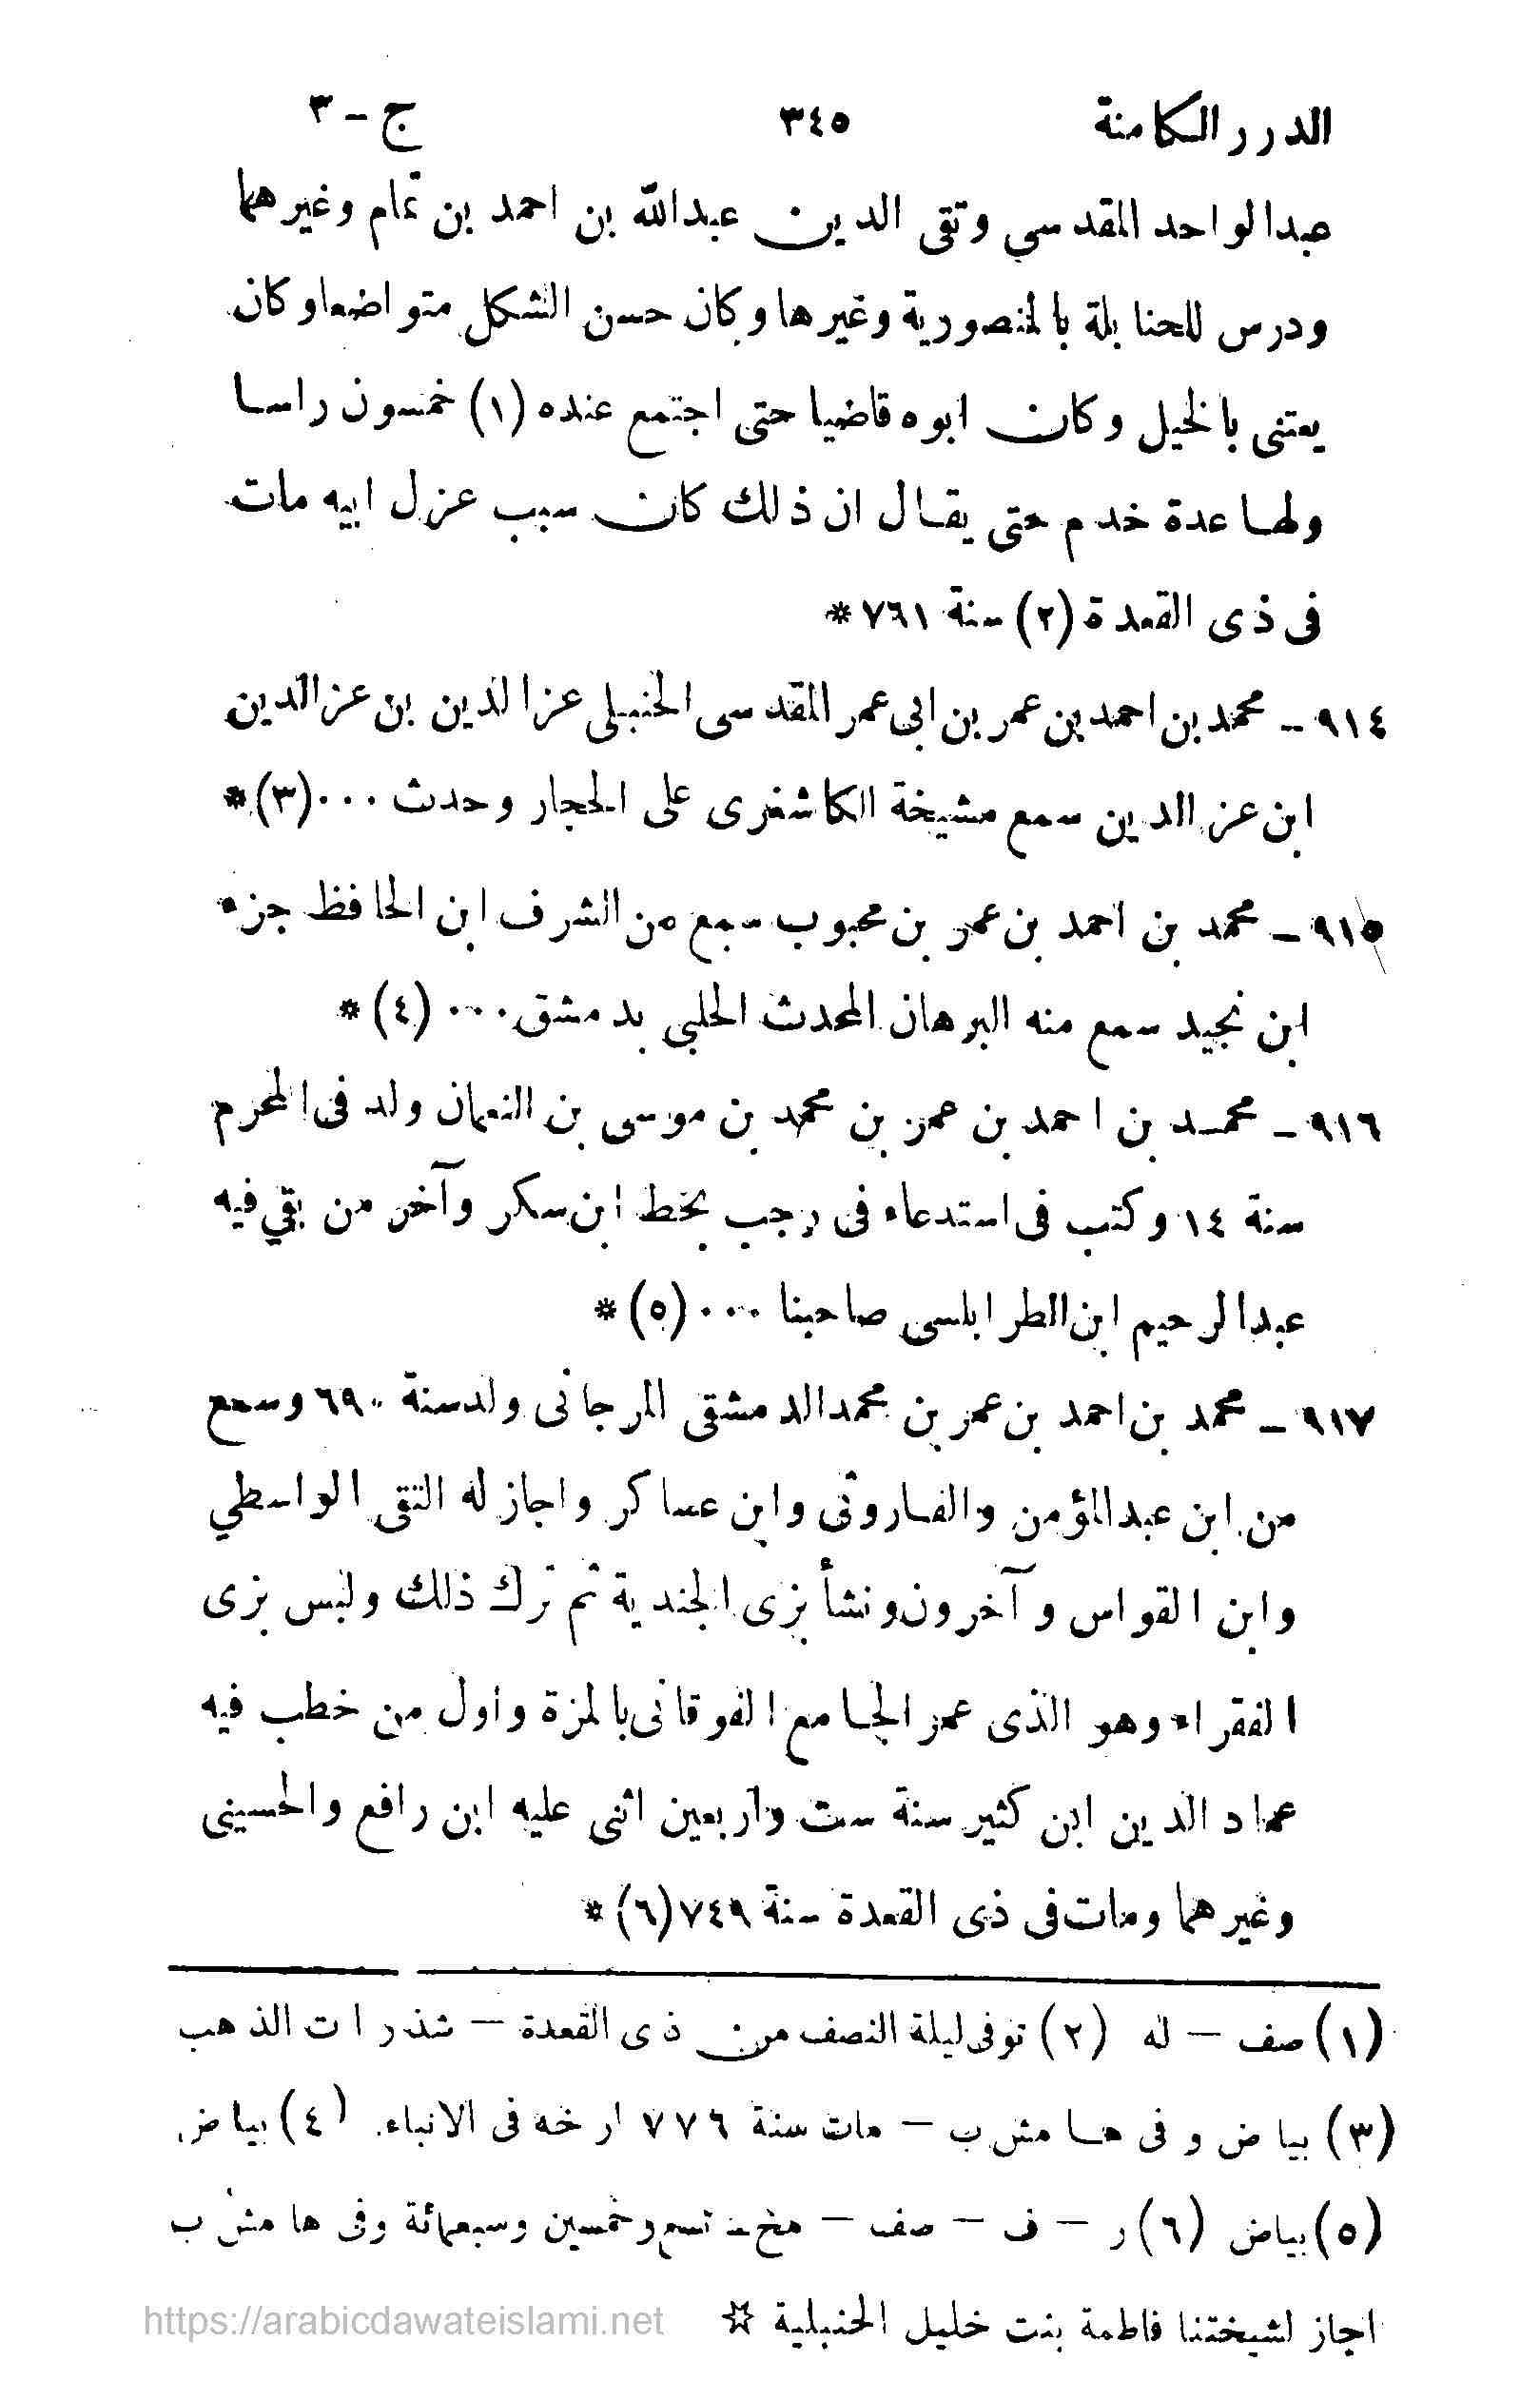 الدرر الكامنة ٣٤٥ ج - ٣
عبدالواحد المقدسي وتقى الدين عبدالله بن احمد بن تمام وغيرهما
ودرس للحنابلة بالمنصورية وغيرها وكان حسن الشكل متواضعا وكان
يعتنى بالخيل وكان ابوه قاضيا حتى اجتمع عنده (١) خمسون راسا
ولها عدة خدم حتى يقال ان ذلك كان سبب عزل ابيه مات
فى ذى القعدة (٢) سنة ٧٦١ *
٩١٤ - محمد بن احمد بن عمر بن ابى عمر المقدسى الحنبلى عز الدين بن عز الدين
ابن عز الدين سمع مشيخة الكاشغرى على الحجار وحدث ٠٠٠ (٣) *
٩١٥ - محمد بن احمد بن عمر بن محبوب سمع من الشرف ابن الحافظ جزء
ابن نجيد سمع منه البرهان المحدث الحلبي بدمشق ٠٠٠ (٤) *
٩١٦ - محمد بن احمد بن عمر بن محمد بن موسى بن النعمان ولد فى المحرم
سنة ١٤ وكتب فى استدعاء فى رجب بخط ابن سكر وآخر من بقي فيه
عبدالرحيم ابن الطرابلسى صاحبنا ٠٠٠ (٥) *
٩١٧ - محمد بن احمد بن عمر بن محمد الدمشقى المرجانى ولد سنة ٦٩٠ وسمع
من ابن عبدالمؤمن والفاروثى وابن عساكر واجاز له التقى الواسطي
وابن القواس وآخرون ونشأ بزى الجندية ثم ترك ذلك ولبس بزى
الفقراء وهو الذى عمر الجامع الفوقانى بالمزة واول من خطب فيه
عماد الدين ابن كثير سنة ست واربعين اثنى عليه ابن رافع والحسينى
وغيرهما ومات فى ذى القعدة سنة ٧٤٩ (٦) *
(١) صف - له (٢) توفى ليلة النصف من ذى القعدة - شذرات الذهب
(٣) بياض وفى هامش ب - مات سنة ٧٧٦ ارخه فى الانباء. (٤) بياض.
(٥) بياض (٦) ر - ف - صف - مخ - تسع وخمسين وسبعمائة وفى هامش ب
اجاز لشيختنا فاطمة بنت خليل الحنبلية ☆
https://arabicdawateislami.net